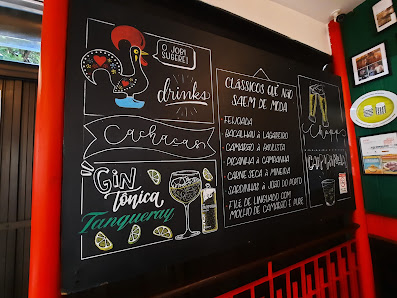 O JOBI
SUGERE!
drinks
Cachaças
Gin
Tônica
Tanqueray
CLÁSSICOS QUE NÃO
SAEM DE MODA
- FEIJOADA
- BACALHAU À LAGAREIRO
- CAMARÃO À PAULISTA
- PICANHA À CAMPANHA
- CARNE SECA À MINEIRA
- SARDINHAS À JOÃO DO PORTO
- FILÉ DE LINGUADO COM
MOLHO DE CAMARÃO E PURÊ
Chopp